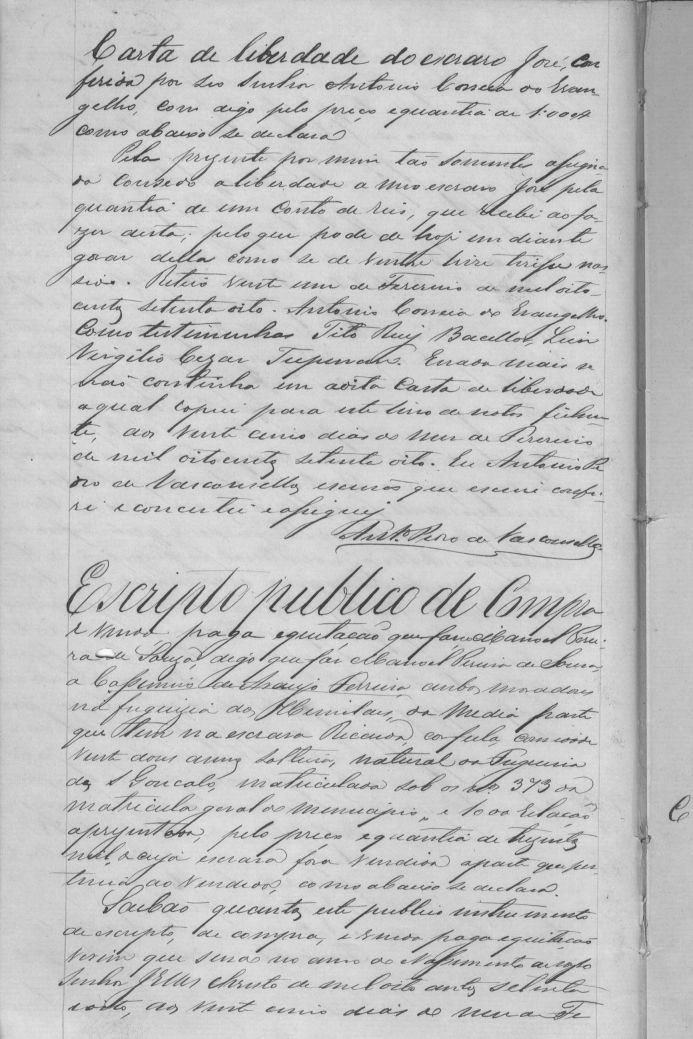 Carta de liberdade do escravo José, con
ferida por seo Senhor Antonio Correia do Evan-
gelho, com digo pelo preço e quantia de 1:000$
como abaixo se declara
Pela prezente por mim tão somente assigna
da consedo a liberdade a meo escravo José pela
quantia de um conto de reis, que recebi ao fa-
zer desta; pelo que pode de hoje em diante
gozar della como se de ventre livre tivesse nas-
sido. Retiro vinte um de Fevereiro de mil oito-
centos setenta oito. Antonio Correia do Evangelho.
Como testimunhas Tito Ruy Bacellos, Luis
Virgilio Cezar Tupinan. E nada mais se
não continha em a dita Carta de liberdade
a qual copiei para este livro de notas fielmen-
te, aos vinte cinco dias do mes de Fevereiro
de mil oitocentos setenta oito. Eu Antonio Pe
dro de Vasconsellos escrivão que escrivi confi-
ri e concertei e assignei
Antº. Pedro de Vasconsellos
Escripto publico de Compra
e venda paga e quitação que faz Manoel Perei-
ra de Souza, digo que faz Manoel Pereira de Souza,
a Cassimiro de Araujo Ferreira ambos moradores
na freguizia dos Humildes, da Media parte
que tem na escrava Ricarda, cafula, com idade
vinte dous annos solteira, natural da Freguezia
de S Goncalo, matriculada sob os nos 373 da
matricula geral do municipio, e 10 da relação
aprezentada, pelo preço e quantia de trezentos
mil, a cuja escrava fora vendida a parte que per-
tencia ao vendedor, como abaixo se declara.
Saibão quantos este publico instrumento
de escripto, de compra, e venda paga e quitação
virem que sendo no anno do Nassimento de nosso
Senhor JEZUS Christo de mil oito centos setenta
e oito, aos vinte cinco dias do mes de Fe